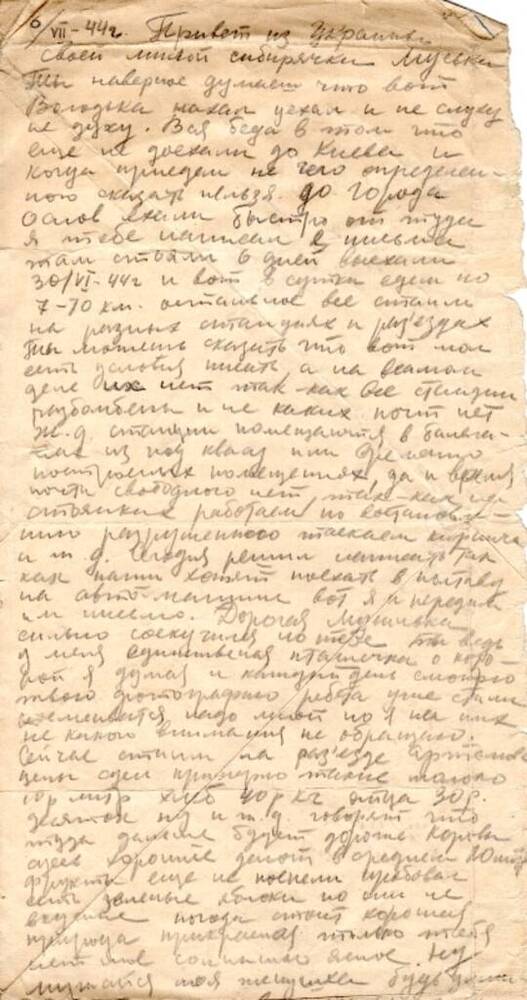 6/VII-44г. Привет из Украины
своей милой сибирячки Муськи
Ты наверное думаеш что вот
Володька нахал уехал и не слуху
не духу. Вся беда в том что
еще не доехали до Киева и
когда приедем не чего определен-
ного сказать нельзя. до города
ехали быстро от туда
я тебе написал 2 письма
там стояли 6 дней выехали
30/VI-44г и вот в сутки едем по
7-70 км. остальное все стоим
на разных станциях и раз'ездах
Ты можешь сказать что вот мол
есть условия писать а на самом
деле их нет так-как все станции
разбомблены и не каких почт нет
ж.д. станции помещаются в
из под или
построеных помещениях, да и время
почти свободного нет, так-как на
стоянках работаем по востановле-
нию разрушенного таскаем кирпичи
и т.д. Сегодня решил написать так
как наши хотят поехать в
на автомашине вот я и передам
им письмо. Дорогая Мусинька
сильно соскучился по тебе ты ведь
у меня единственная пташечка о кото-
рой я думая и каждый день смотрю
твою фотографию ребята уже стали
надо мной но я на них
не какого внимания не обращаю.
Сейчас стоим на раз'езде
цены здеся примерно такие молоко
10р литр хлеб 40р кг яйца 30р.
десяток и т.д. говорят что
туда дальше будет дороже Коровы
здеся хорошие дают в среднем 10 литр
фрукты еще не поспели пробовал
есть зеленые яблоки но они не
вкусные погода стоит хорошая
природа прекрасная только тебя
нет мое солнышко ясное. Ну
моя будь